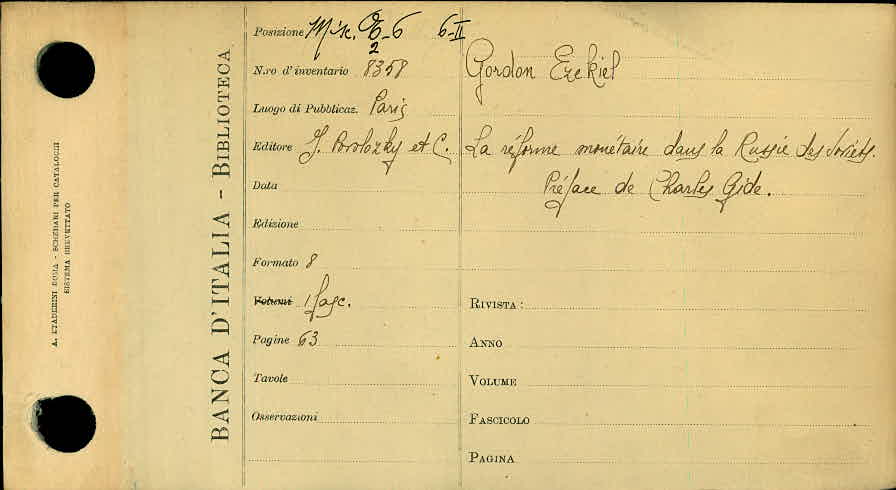 A. STADERINI ROMA - SCHEDARI PER CATALOGHI
SISTEMA BREVETTATO
BANCA D'ITALIA - BIBLIOTECA
Posizione Misc. 6-6 6-II
2
N.ro d'inventario 8358
Luogo di Pubblicaz. Paris
Editore J. Povolozky et C.
Data
Edizione
Formato 8
Volumi 1 fasc.
Pagine 63
Tavole
Osservazioni
Gordon Ezekiel
La réforme monétaire dans la Russie des Soviets.
Préface de Charles Gide.
RIVISTA :
ANNO
VOLUME
FASCICOLO
PAGINA